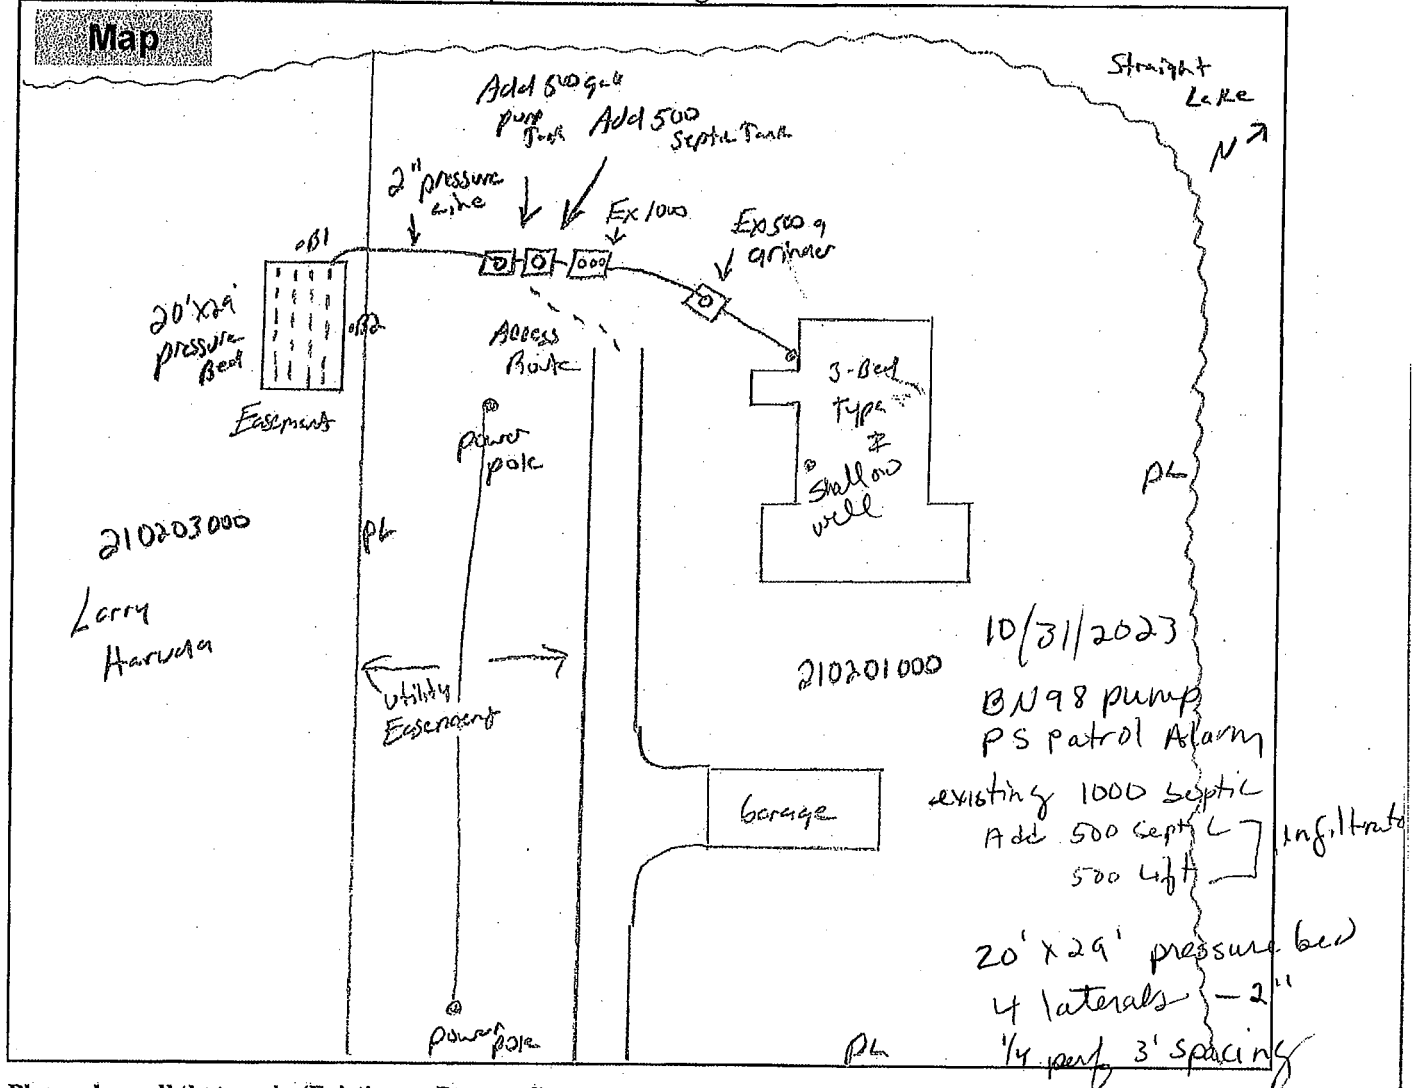 Map
Straight
Lake
N
Add 500 gal
pump
Tank
Add 500
Septic Tank
2" pressure
Line
Ex 1000
Ex 500 g
grinder
B1
B2
20'x29'
pressure
Bed
Easement
Access
Route
power
pole
3-Bed
Type
I
Shallow
well
PL
PL
210203000
Larry
utility
Easement
210201000
Garage
power
pole
PL
10/31/2023
BN98 pump
PS patrol Alarm
existing 1000 septic
Add 500 septic
500 Lift
infiltrato
20' x 29' pressure bed
4 laterals - 2"
1/4 perf 3' spacing